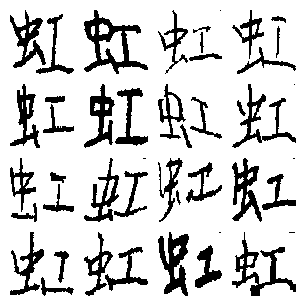 虹虹虹虹
虹虹虹虹
虹虹虹虹
虹虹虹虹